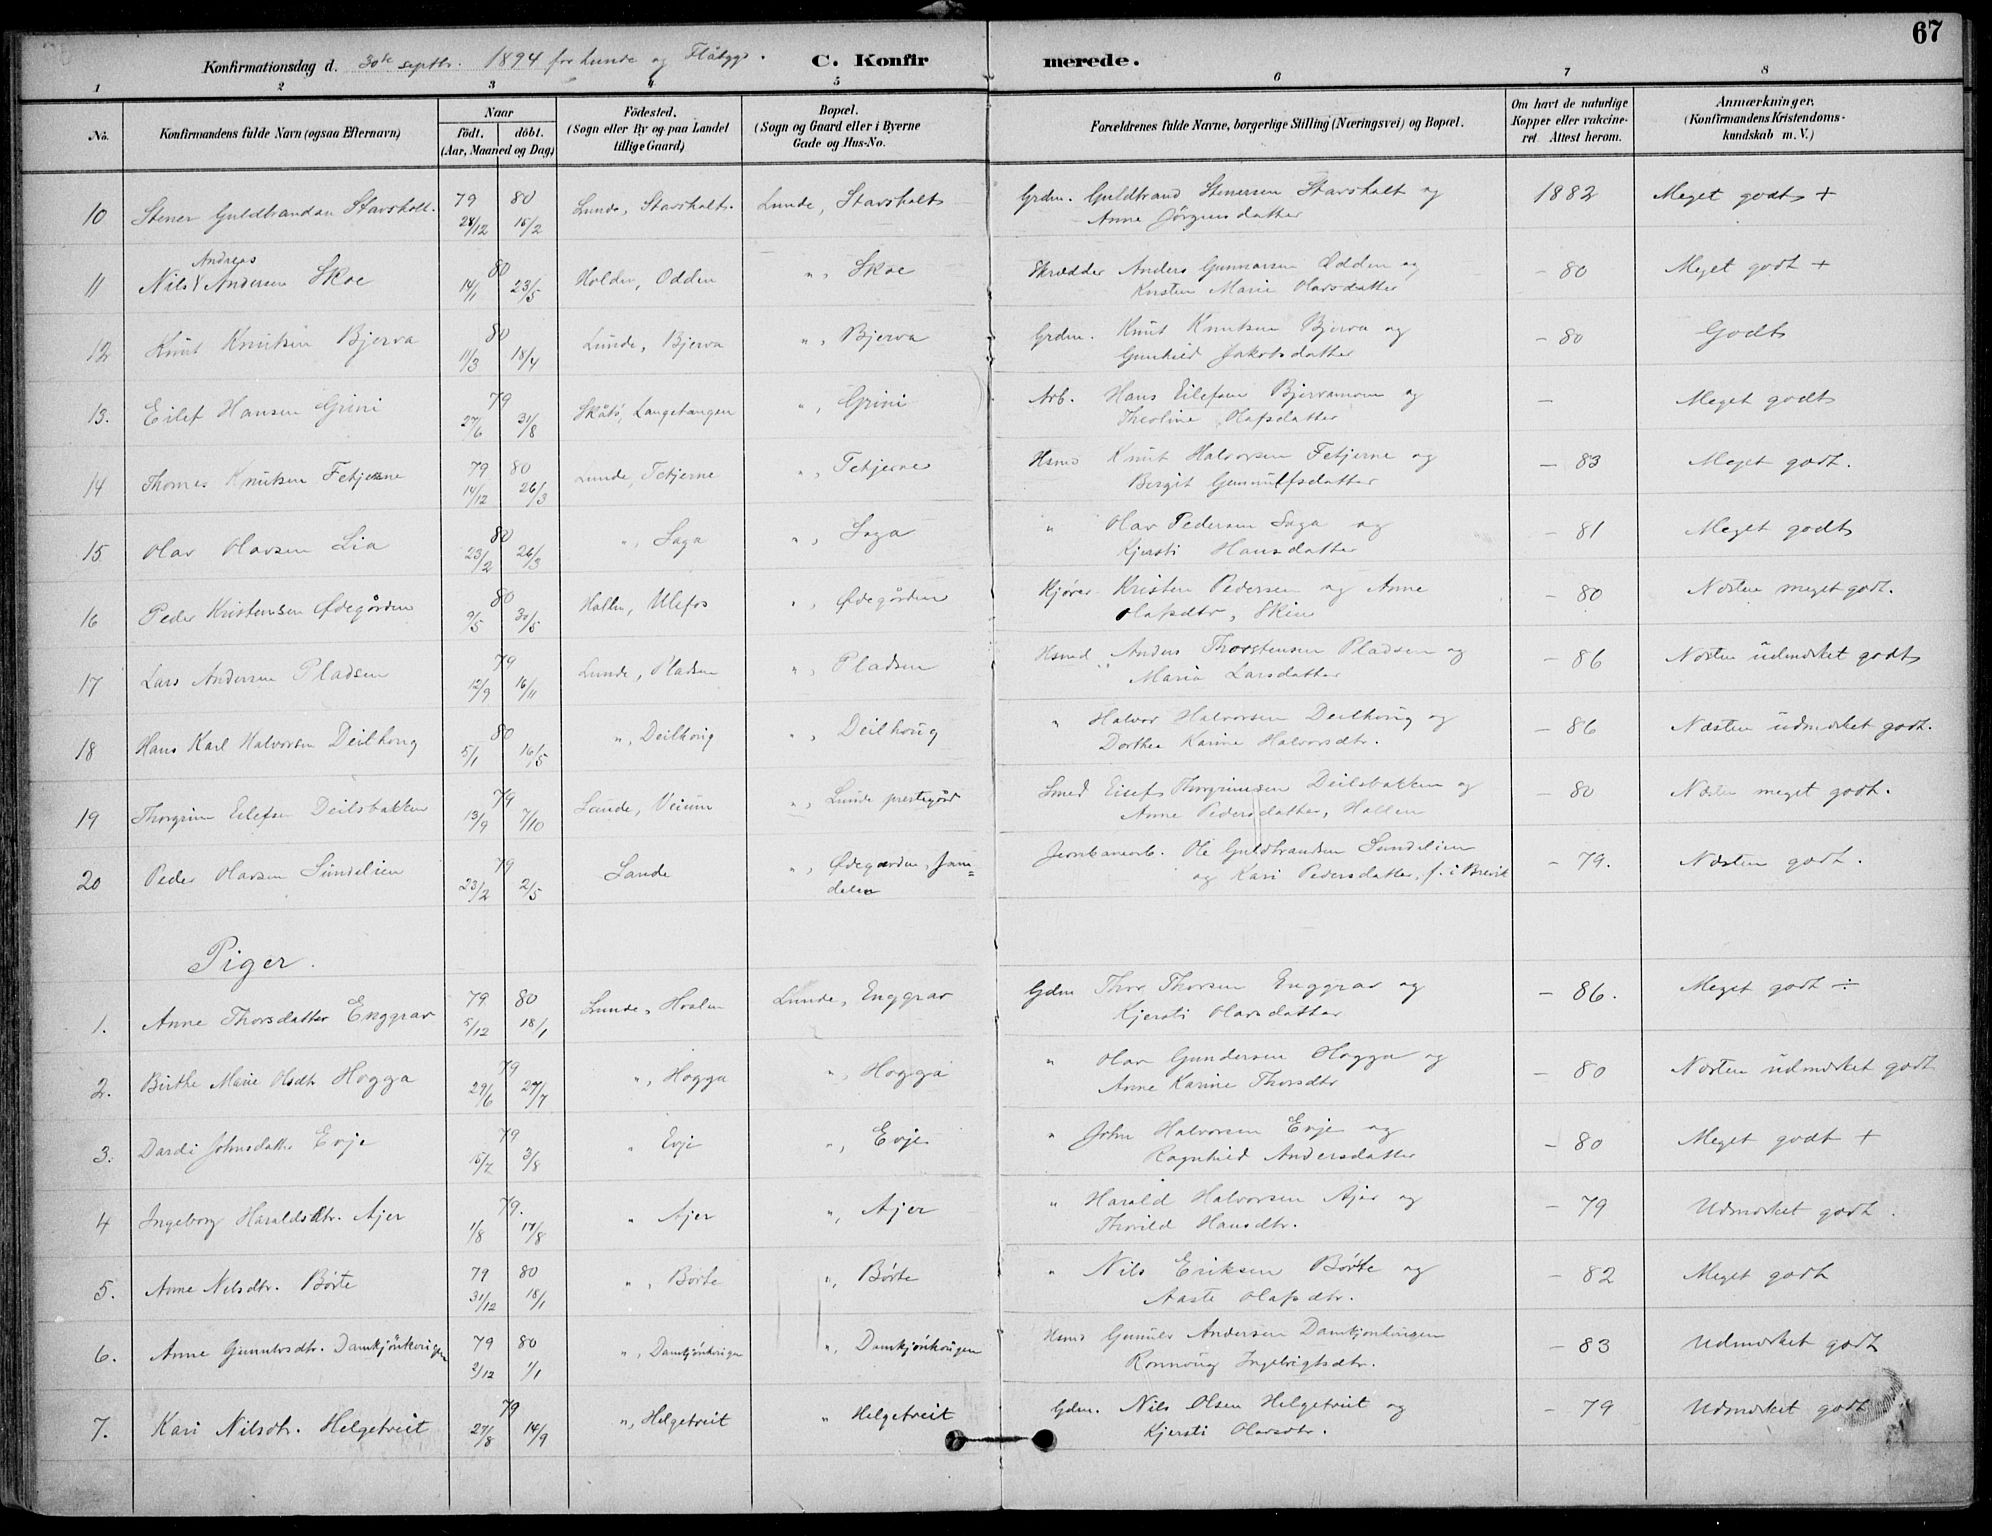 67
Konfirmationsdag d. 30te septbr. 1894 for Lunde og Flåbygd. C. Konfirmerede.
1 2 3 4 5 6 7 8
No. Konfirmandens fulde Navn (ogsaa Efternavn) Naar født. døbt. (Aar, Maaned og Dag) Fødested. (Sogn eller By og paa Landet tillige Gaard) Bopæl. (Sogn og Gaard eller i Byerne Gade og Hus-No. Forældrenes fulde Navne, borgerlige Stilling (Næringsvei) og Bopæl. Om havt de naturlige Kopper eller vaccineret Attest herom. Anmærkninger. (Konfirmandens Kristendomskundskab m. V.)
10 Stener Guldbrandsn Stavsholt. 79 28/12 80 15/2 Lunde, Stavsholt. Lunde, Stavsholt Grdm. Guldbrand Stenersen Stavsholt og 1882 Meget godt +
Anne Jörgensdatter
11 Nils Andreas Andersen Skoe 80 14/1 23/5 Holden, Odden ", Skoe Skrædder Anders Gunnarsen Odden og - 80 Meget godt +
Kirsten Marie Olavsdatter
12 Knut Knutsen Bjerva 80 11/3 18/4 Lunde, Bjerva ", Bjerva Grdm. Knut Knutsen Bjerva og - 80 Godt
Gunhild Jakobsdatter
13. Eilef Hansen Grini 79 27/6 31/8 Skåtö, Langetangen ", Grini Arb. Hans Eilefsen Bjervamoen og - Meget godt
Theoline Olafsdatter
14 Thomes Knutsen Fetjerne 79 14/12 80 26/3 Lunde, Tetjerne ", Tetjerne Hsmd Knut Halvorsen Fetjerne og - 83 Meget godt.
Birgit Gunnulfsdatter
15 Olav Olavsen Lia 80 23/2 26/3 ", Saga ", Saga " Olav Pedersen Saga og - 81 Meget godt
Kjersti Hansdatter
16 Peder Kristensen Ødegården 80 9/5 30/5 Hollen, Ulefos ", Ødegården Kjører Kristen Pedersen og Anne - 80 Næsten meget godt.
Olafsdtr, Skien
17 Lars Andersen Pladsen 79 12/9 16/11 Lunde, Pladsen ", Pladsen Hsmd Anders Thorstensen Pladsen og - 86 Næsten udmærket godt
Maria Larsdatter
18 Hans Karl Halvorsen Deilhoug 80 5/1 16/5 ", Deilhoug ", Deilhoug " Halvor Halvorsen Deilhoug og - 86 Næsten udmærket godt.
Dorthea Karine Halvorsdtr.
19 Thorgrim Eilefsen Deilsbakken 79 13/9 7/10 Lunde, Veium ", Lunde prestegård Smed Eilef Thorgrimsen Deilsbakken og - 80 Næsten meget godt.
Anne Pedersdatter, Hollen
20 Peder Olavsen Sundelien 79 23/2 2/5 Sande ", Ødegarden, Jern=dalen Jernbanearb. Ole Guldbrandsen Sundelien - 79. Næsten godt.
og Kari Pedersdatter, f. i Brevik
Piger.
1. Anne Thorsdatter Enggrav 79 5/12 80 18/1 Lunde, Hvalen Lunde, Enggrav Gdm Thor Thorsen Enggrav og - 86. Meget godt ÷
Kjersti Olavsdatter
2. Birthe Marie Olsdtr Hogga 79 29/6 27/7 ", Hogga ", Hogga " Olav Gundersen Hogga og - 80 Næsten udmærket godt
Anne Karine Thorsdtr
3. Dardi Johnsdattr Evje 79 15/7 3/8 " Evje ", Evje " John Halvorsen Evje og - 80 Meget godt +
Ragnhild Andersdatter
4 Ingeborg Haraldsdtr. Ajer 79. 1/8 17/8 " Ajer ", Ajer " Harald Halvorsen Ajer og - 79 Udmærket godt.
Thorild Hansdtr.
5. Anne Nilsdtr. Börte 79 31/12 80 18/1 ", Börte ", Börte " Nils Eriksen Börte og - 82 Meget godt
Aaste Olafsdtr.
6. Anne Gunulvsdtr. Damkjönhougen 79 2/12 80 1/1 ", Damkjönhougen ", Damkjönhougen Hsmd Gunulv Andersen Damkjönhougen - 83 Udmærket godt
Rønnoug Ingebrigtsdtr.
7. Kari Nilsdtr. Helgetveit 79 27/8 14/9 ", Helgetveit " Helgetveit Gdm. Nils Olsen Helgetveit og - 79 Udmærket godt
Kjersti Olavsdtr.